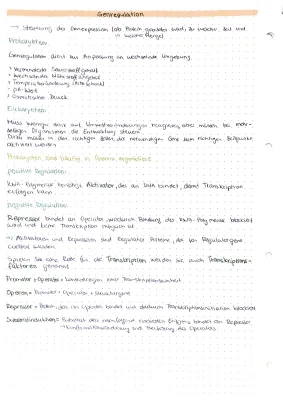 Genregulation
→ Steuerung der Genexpression (ob Protein gebildet wird, zu welcher Zeit und
in welcher Menge)
Prokaryoten:
Genregulation dient zur Anpassung an wechselnde Umgebung
• wechselnde Nährstoffangebot
• Temperaturänderung (Hitzeschock)
• pH-Wert
• Osmotischer Druck
Eukaryoten:
Muss weniger stark auf Umweltveränderungen reagieren, aber müssen bei mehr-
zelligen Organismen die Entwicklung steuern
Dafür müssen in den richtigen Zellen die notwendigen Gene zum richtigen Zeitpunkt
aktiviert werden
Prokaryoten sind häufig in Operons organisiert
positive Regulation:
RNA-Polymerase benötigt Aktivator, der an DNA bindet, damit Transkription
erfolgen kann
negative Regulation:
Repressor bindet an Operator, wodurch Bindung der RNA-Polymerase blockiert
wird und keine Transkription möglich ist
=> Aktivatoren und Repressoren sind Regulator Proteine, die von Regulatorgene
codiert werden
Spielen sie eine Rolle für die Transkription werden sie auch Transkriptions-
faktoren genannt
Promotor + Operator = Kontrollregion einer Transkriptionseinheit
Operon = Promotor + Operator + Strukturgene
Repressor = Protein, das an Operator bindet und dadurch Transkriptionsinitiation blockiert
Substratinduktion = Substrat des codierten Enzyms bindet an Repressor
→ Konformationsänderung und des Operators